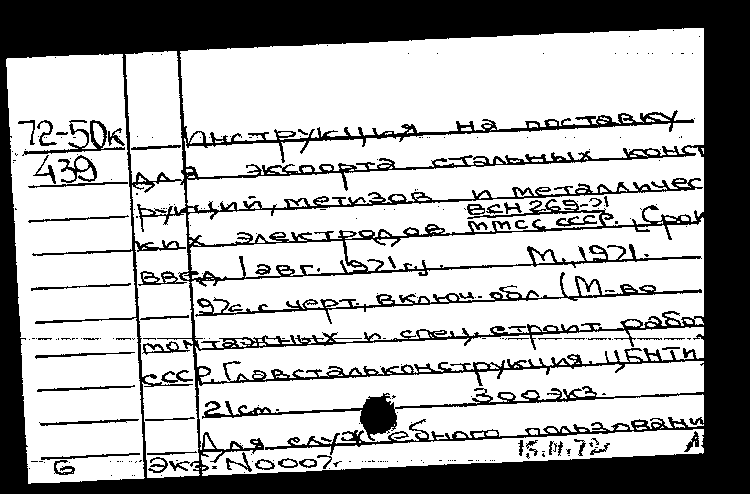 72-50к Инструкция на поставку
439 для экспорта стальных конст
рукций, метизов и металличес
ВСН 269-71
ких электродов ММСС СССР. [Срок
введ. 1 авг. 1971 г.]. М., 1971.
97с. с черт., включ. обл. (М-во
монтажных и спец. строит. работ
СССР. Главстальконструкция. ЦБНТИ)
21 см. 300 экз.
Для служебного пользовани
6 Экз. N 0007. 15.II.72